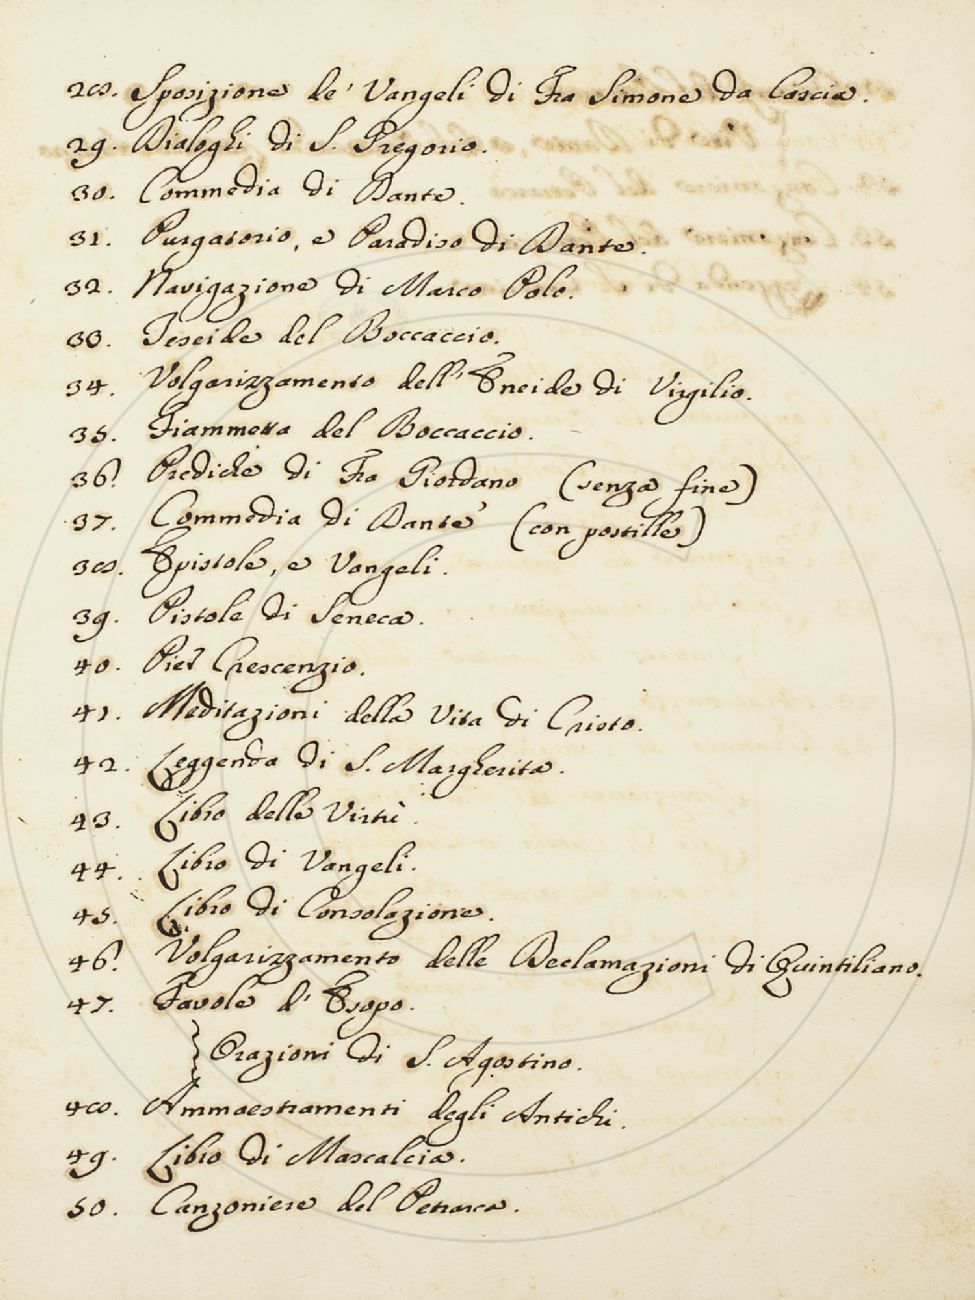 28. Sposizione de' Vangeli di Fra Simone da Cascia.
29. Dialoghi di S. Gregorio.
30. Commedia di Dante.
31. Purgatorio, e Paradiso di Dante.
32. Navigazione di Marco Polo.
33. Teseide del Boccaccio.
34. Volgarizzamento dell'Eneide di Virgilio.
35. Fiammetta del Boccaccio.
36. Prediche di Fra Giordano (senza fine)
37. Commedia di Dante (con postille)
38. Epistole, e Vangeli.
39. Pistole di Seneca.
40. Pier Crescenzio.
41. Meditazioni della Vita di Cristo.
42. Leggenda di S. Margherita.
43. Libro delle Virtù.
44. Libro di Vangeli.
45. Libro di Consolazione.
46. Volgarizzamento delle Declamazioni di Quintiliano.
47. Favole d'Esopo.
Orazioni di S. Agostino.
48. Ammaestramenti degli Antichi.
49. Libro di Mascalcia.
50. Canzoniere del Petrarca.